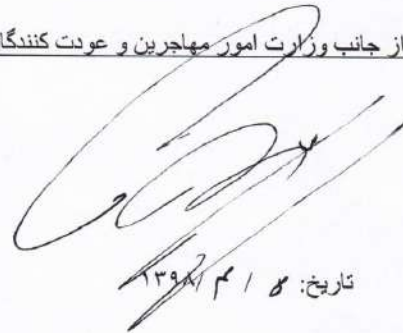 از جانب وزارت امور مهاجرین و عودت کنندگا
تاریخ: ۵ / ۴ /۱۳۹۸